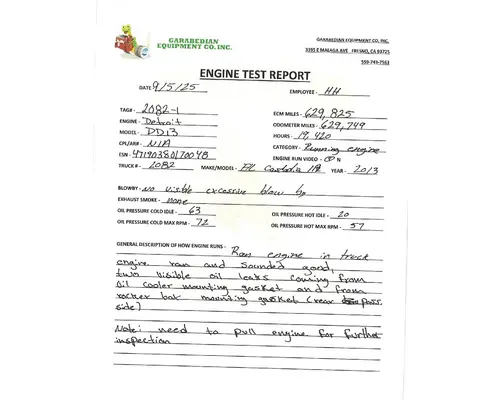 GARABEDIAN
EQUIPMENT CO. INC.
GARABEDIAN EQUIPMENT CO, INC.
3391 E MALAGA AVE FRESNO, CA 93725
559-743-7563
ENGINE TEST REPORT
DATE 9/5/25 EMPLOYEE - HH
TAG# - 2082-1 ECM MILES - 629,825
ENGINE - Detroit ODOMETER MILES - 629,749
MODEL - DD13 HOURS - 19,420
CPL/AR# - N/A CATEGORY - Running engine
ESN - 471903S0170048 ENGINE RUN VIDEO - Y N
TRUCK # - 2082 MAKE/MODEL - FL YEAR - 2013
BLOWBY - no visible excessive blow by
EXHAUST SMOKE - none
OIL PRESSURE COLD IDLE - 63 OIL PRESSURE HOT IDLE - 20
OIL PRESSURE COLD MAX RPM - 72 OIL PRESSURE HOT MAX RPM - 57
GENERAL DESCRIPTION OF HOW ENGINE RUNS - Ran engine in truck
engine ran and sounded good,
two visible oil leaks coming from
Oil cooler mounting gasket and from
rocker box mounting gasket (rear pass.
side)
Note: need to pull engine for further
inspection